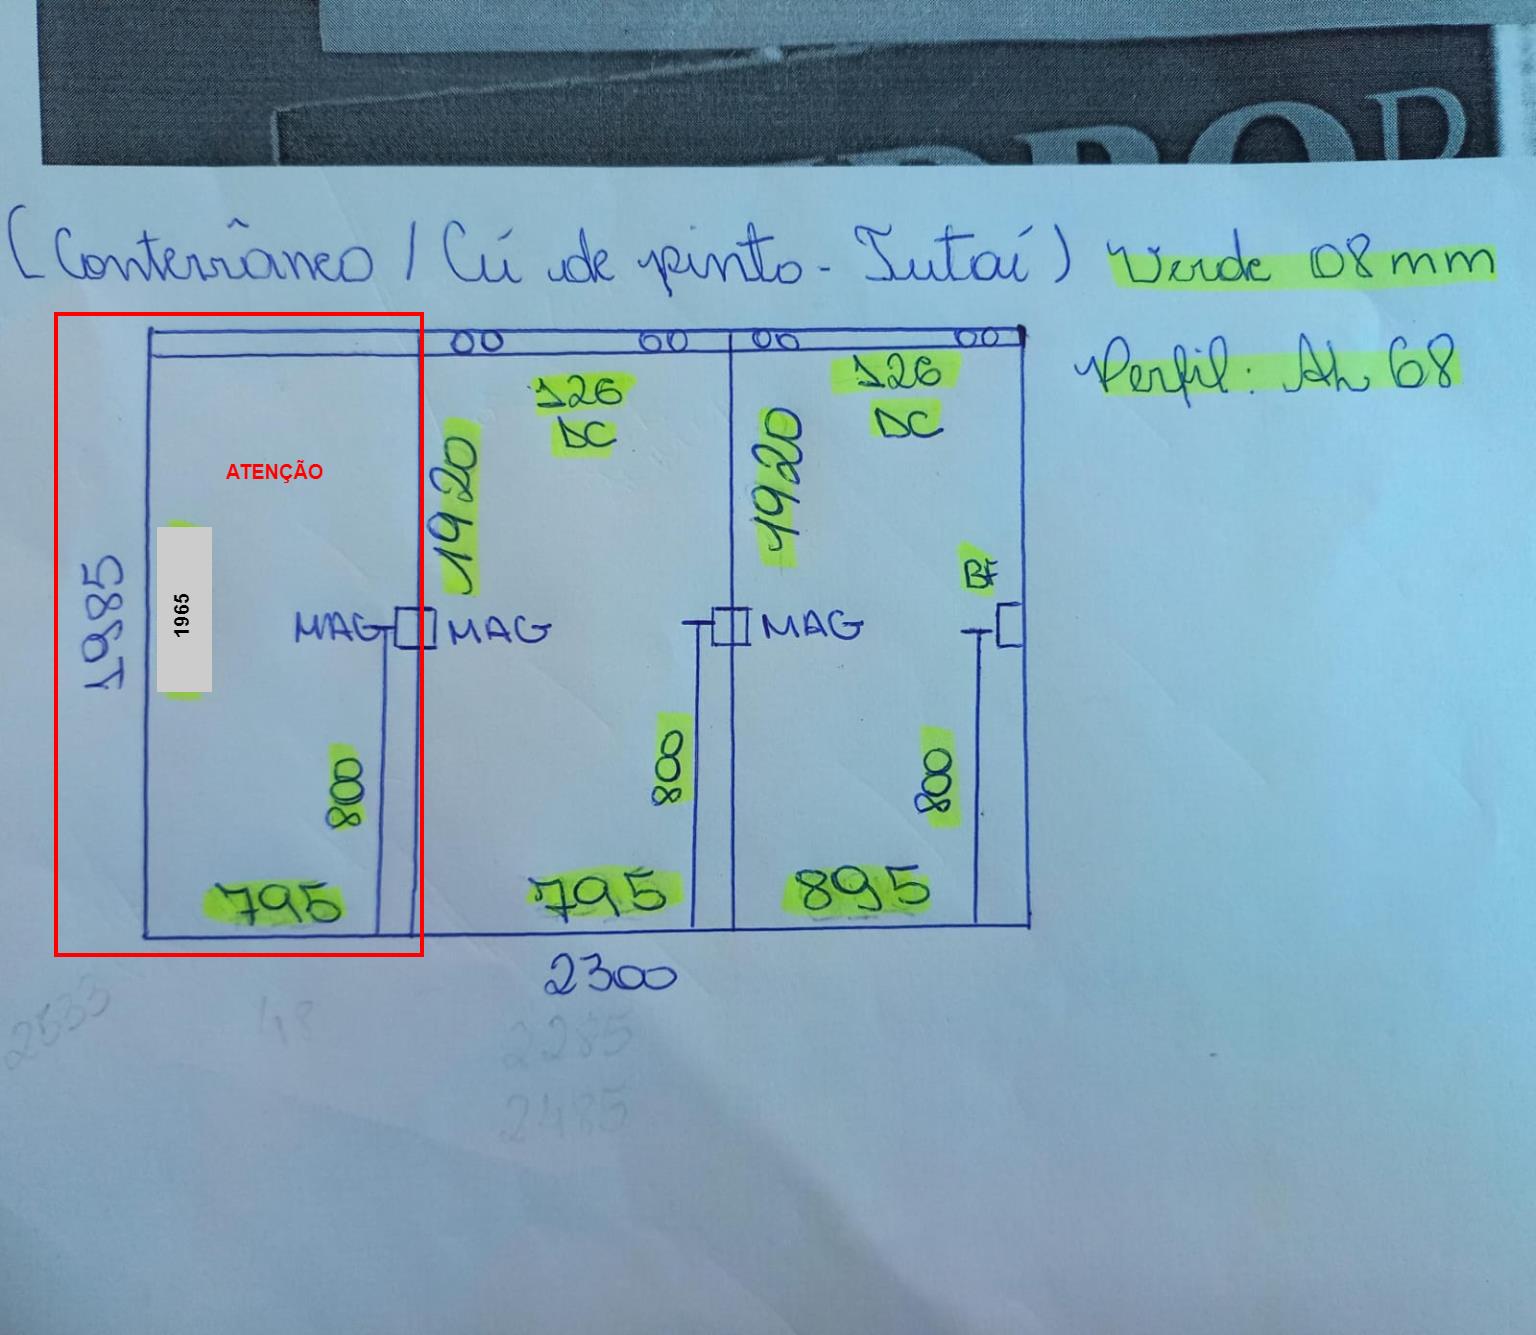 (Conterrâneo / Cú de pinto - Jutaí) Verde 08mm
Perfil: AL 68
126
DC
126
DC
1920
1920
ATENÇÃO
1985
1965
BF
MAG
MAG
MAG
800
800
800
795
795
895
2300
2533
48
2285
2485